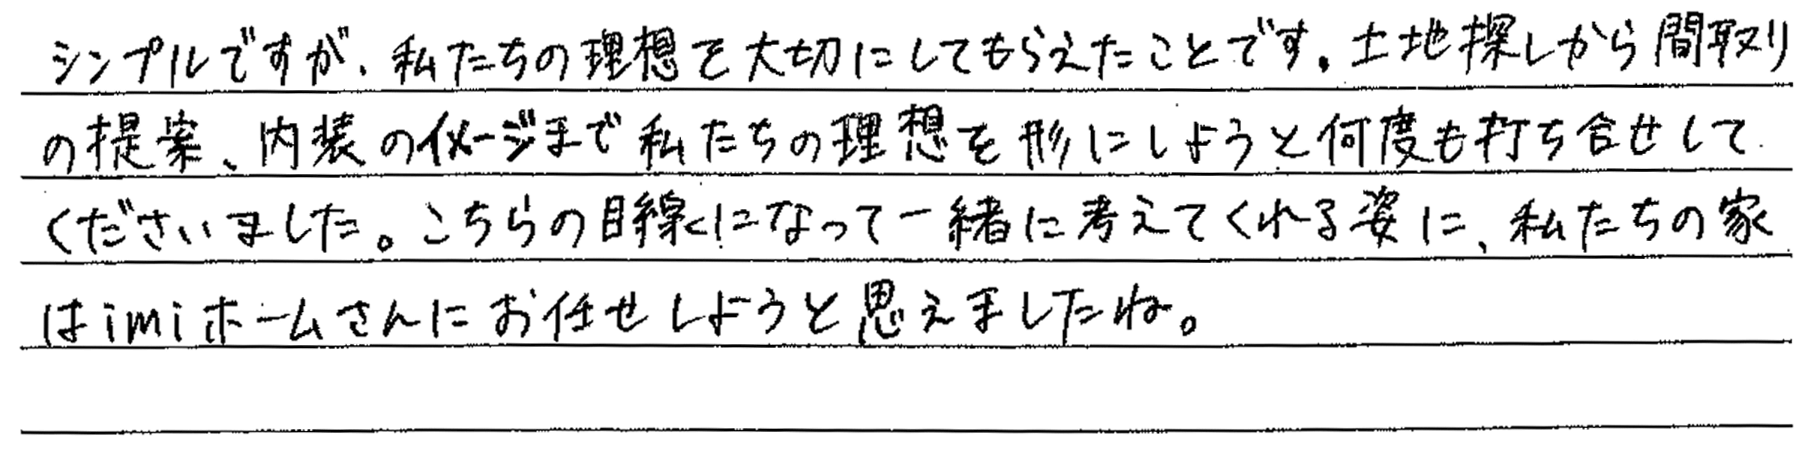 シンプルですが、私たちの理想を大切にしてもらえたことです。土地探しから間取り
の提案、内装のイメージまで私たちの理想を形にしようと何度も打ち合せして
くださいました。こちらの目線になって一緒に考えてくれる姿に、私たちの家
はimiホームさんにお任せしようと思えましたね。